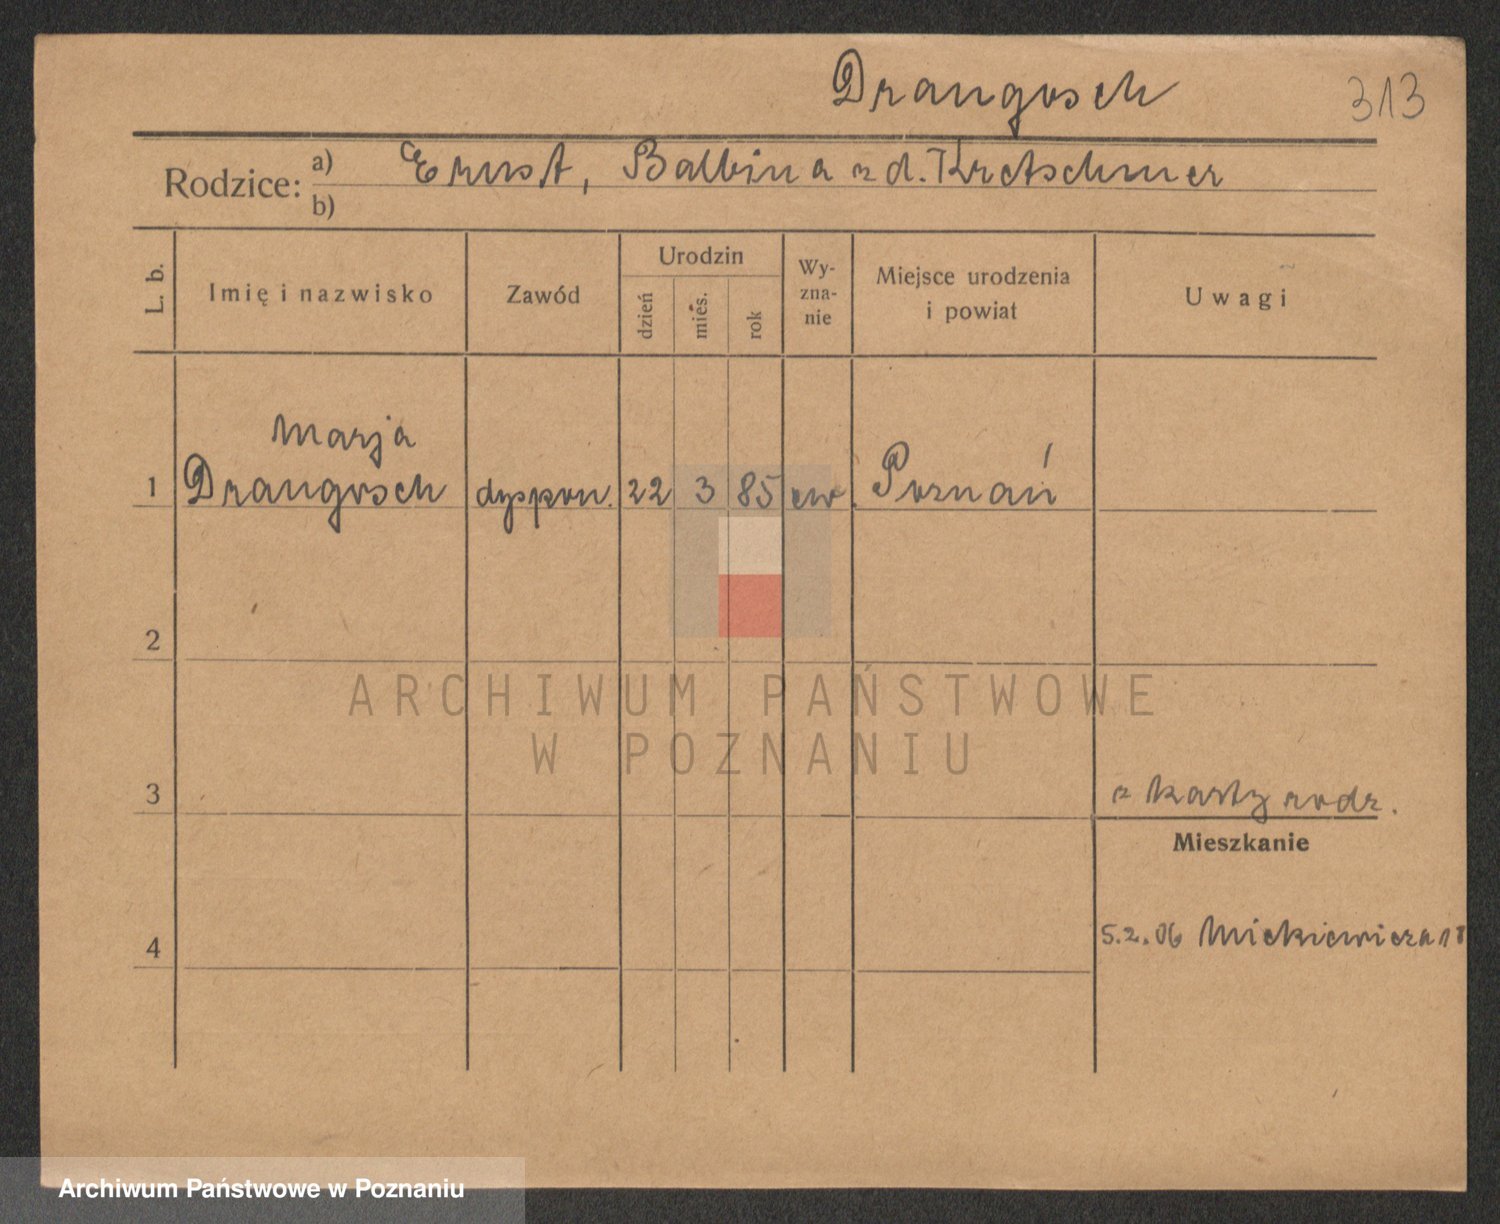 Drangosch
313
Rodzice: a) Ernst, Balbina z d. Kretschmer
b)
L. b.
Imię i nazwisko
Zawód
Urodzin
dzień
mies.
rok
Wy-
zna-
nie
Miejsce urodzenia
i powiat
Uwagi
Marja
1 Drangosch dyspon. 22 3 85 ew. Poznań
2
ARCHIWUM PAŃSTWOWE
W POZNANIU
3
z karty rodz.
Mieszkanie
4
5.2.06 Mickiewicza
Archiwum Państwowe w Poznaniu